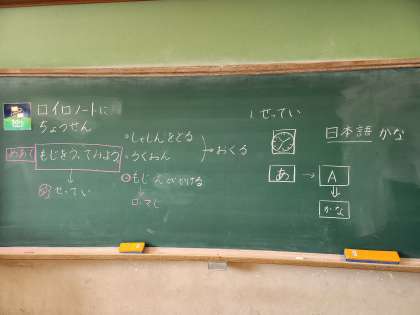 ロイロノートに
ちょうせん
めあて
もじをうってみよう
せってい
しゃしんをとる
ろくおん
おくる
もじ
ローマじ
1 せってい
あ → A
かな
日本語 かな